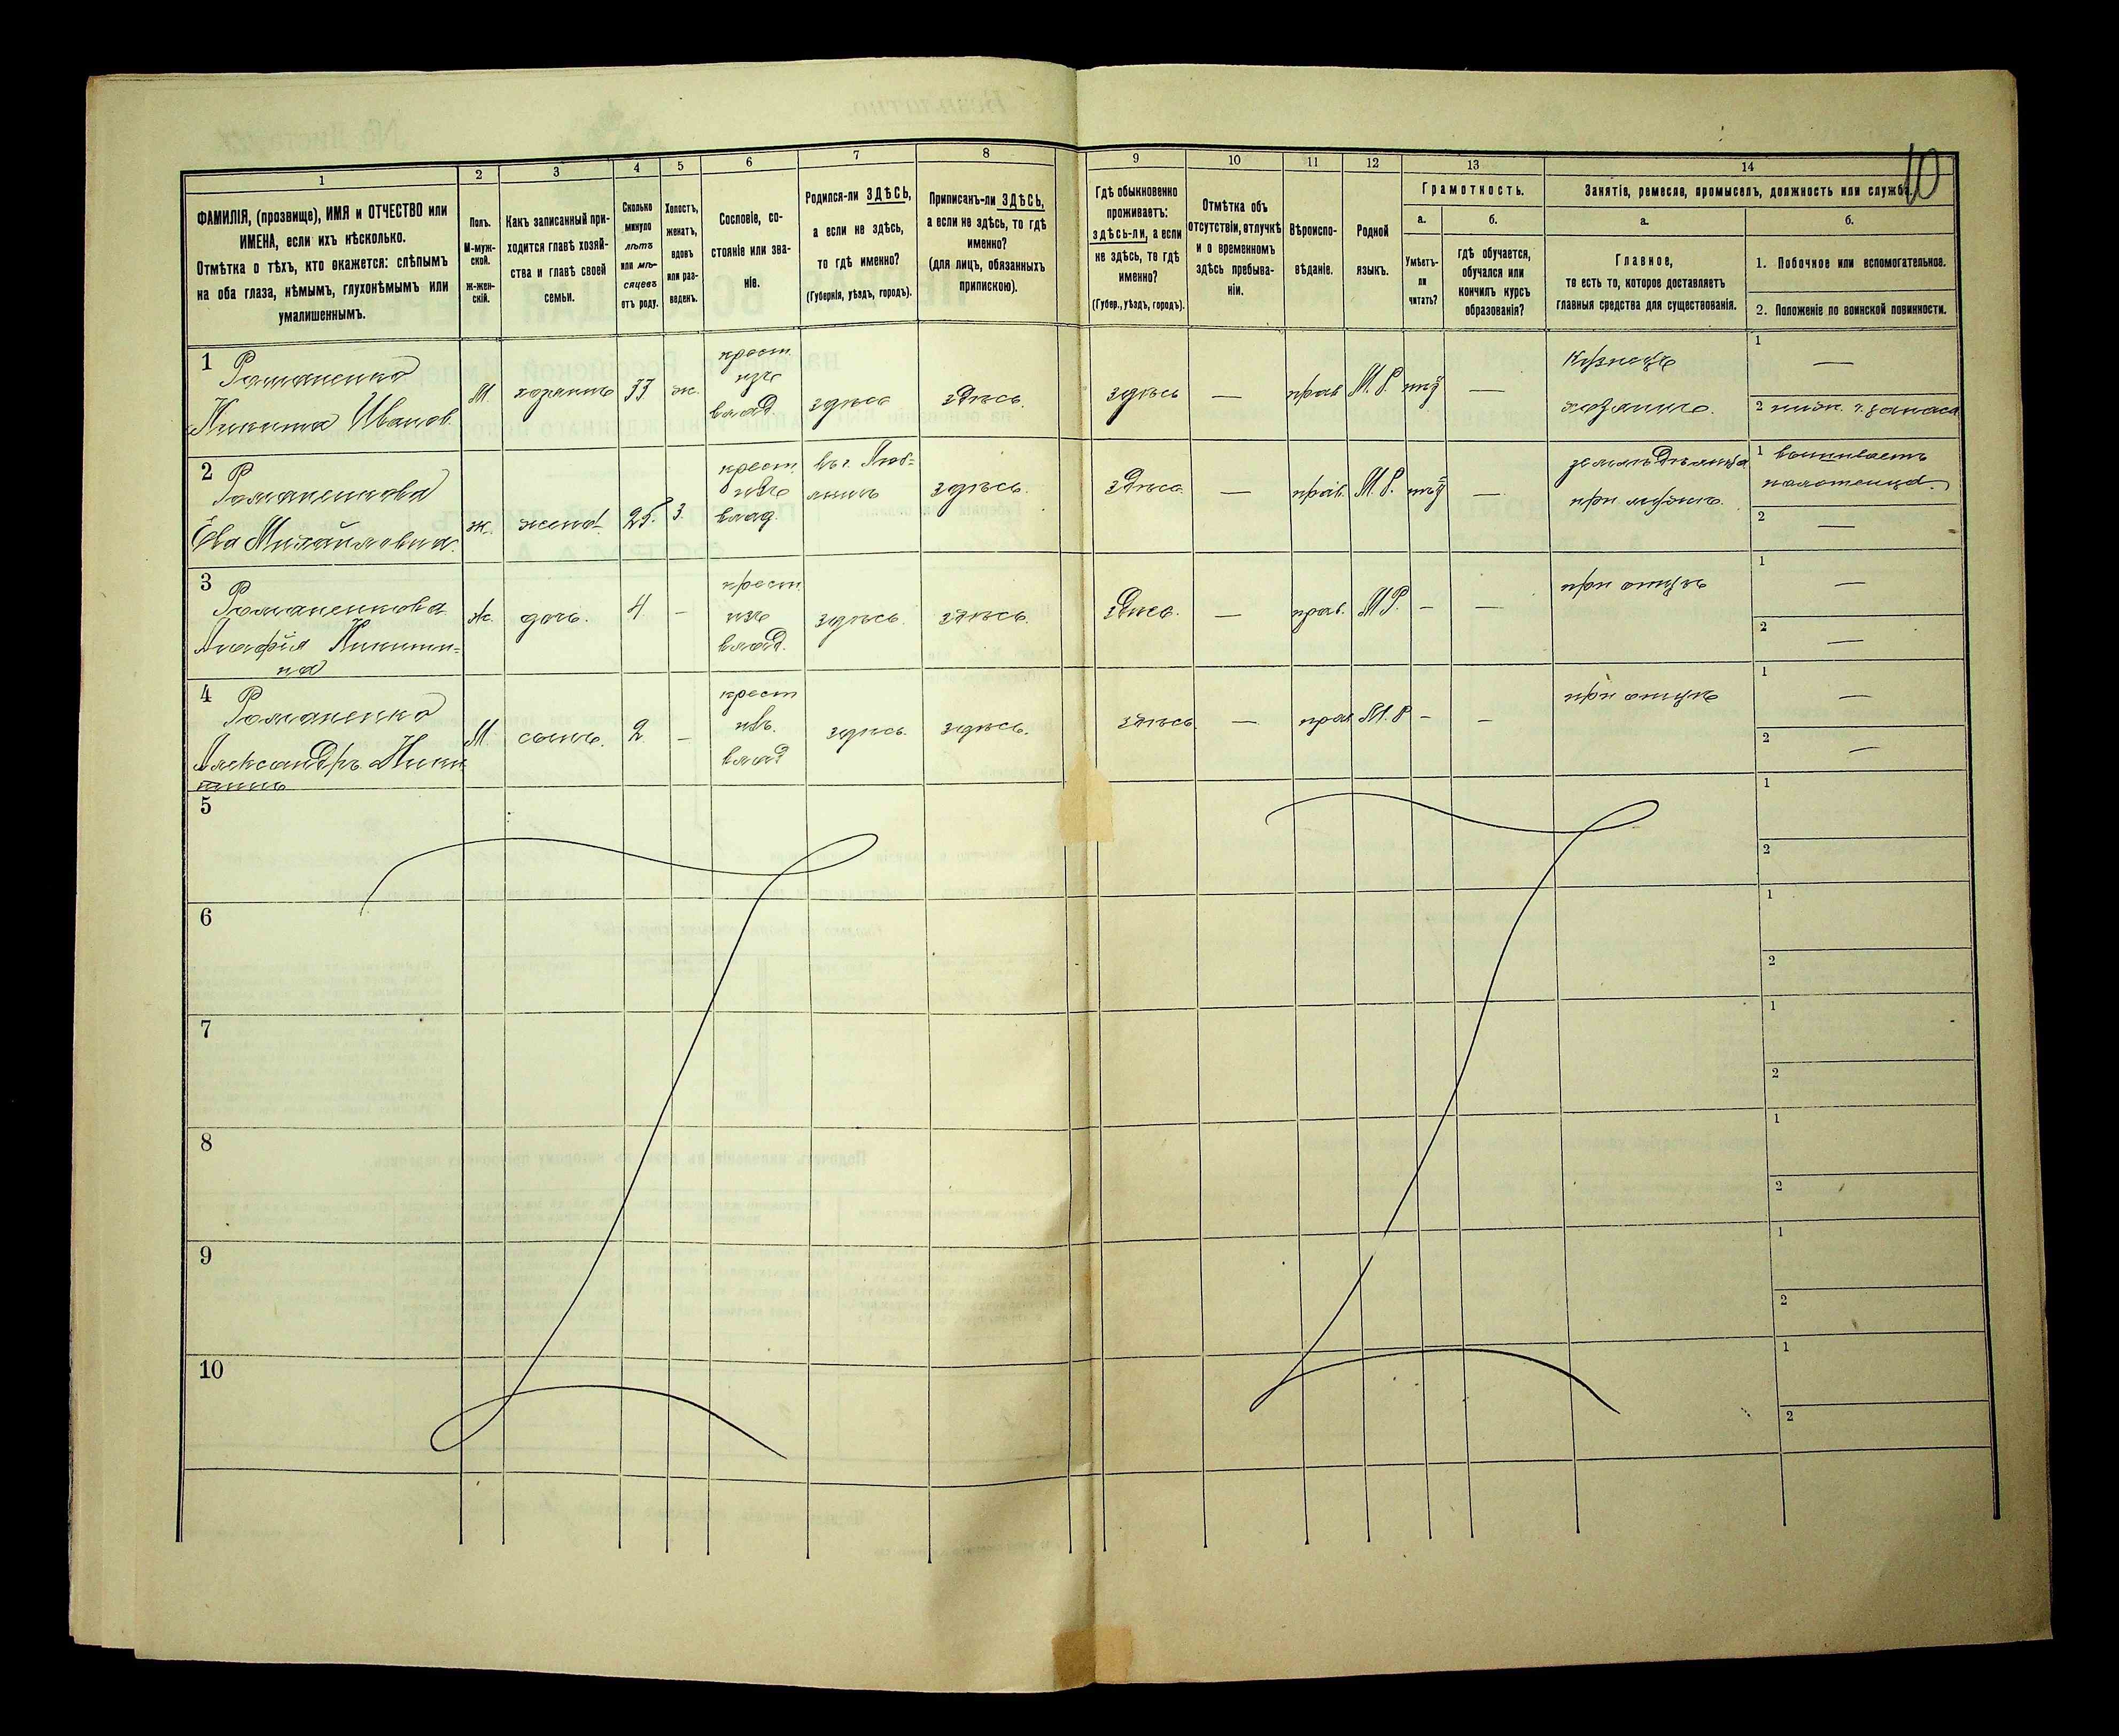 10
1
2
3
4
5
6
7
8
9
10
11
12
13
14
ФАМИЛІЯ, (прозвище), ИМЯ и ОТЧЕСТВО или
ИМЕНА, если ихъ нѣсколько.
Отмѣтка о тѣхъ, кто окажется: слѣпымъ
на оба глаза, нѣмымъ, глухонѣмымъ или
умалишеннымъ.
Полъ.
М-муж-
ской.
ж-жен-
скій.
Какъ записанный при-
ходится главѣ хозяй-
ства и главѣ своей
семьи.
Сколько
минуло
лѣтъ
или мѣ-
сяцевъ
отъ роду.
Холостъ,
женатъ,
вдовъ
или раз-
веденъ.
Сословіе, со-
стояніе или зва-
ніе.
Родился-ли ЗДѢСЬ,
а если не здѣсь,
то гдѣ именно?
(Губернія, уѣздъ, городъ).
Приписанъ-ли ЗДѢСЬ,
а если не здѣсь, то гдѣ
именно?
(для лицъ, обязанныхъ
припискою).
Гдѣ обыкновенно
проживаетъ:
здѣсь-ли, а если
не здѣсь, то гдѣ
именно?
(Губер., уѣздъ, городъ).
Отмѣтка объ
отсутствіи, отлучкѣ
и о временномъ
здѣсь пребыва-
ніи.
Вѣроиспо-
вѣданіе.
Родной
языкъ.
Грамотность.
а.
Умѣетъ-
ли
читать?
б.
гдѣ обучается,
обучался или
кончилъ курсъ
образованія?
Занятіе, ремесло, промыселъ, должность или служба.
а.
Главное,
то есть то, которое доставляетъ
главныя средства для существованія.
б.
1. Побочное или вспомогательное.
2. Положеніе по воинской повинности.
1 Романенко
Никита Иванов.
М. хозяинъ 33 ж.
крест.
изъ
влад.
здѣсь здѣсь. здѣсь — прав М. Р. нѣт —
Кузнецъ
хозяинъ.
1 —
2 нижн. ч. запаса
2 Романенкова
Ева Михайловна.
ж. жена 25. З.
крест.
изъ
влад.
въ г. Люб-
линѣ
здѣсь. здѣсь. — прав. М. Р. нѣт —
земледѣлица
при мужѣ.
1 вышиваетъ
полотенца.
2 —
3 Романенкова
Агафія Никити-
на
ж. дочь. 4 —
крест.
изъ
влад.
здѣсь. здѣсь. здѣсь. — прав. М Р. — —
при отцѣ
1 —
2 —
4 Романенко
Александръ Ники
тинъ
М. сынъ. 2 —
крест
изъ.
влад
здѣсь. здѣсь. здѣсь. — прав М. Р — —
при отцѣ
1 —
2 —
5
1
2
6
1
2
7
1
2
8
1
2
9
1
2
10
1
2